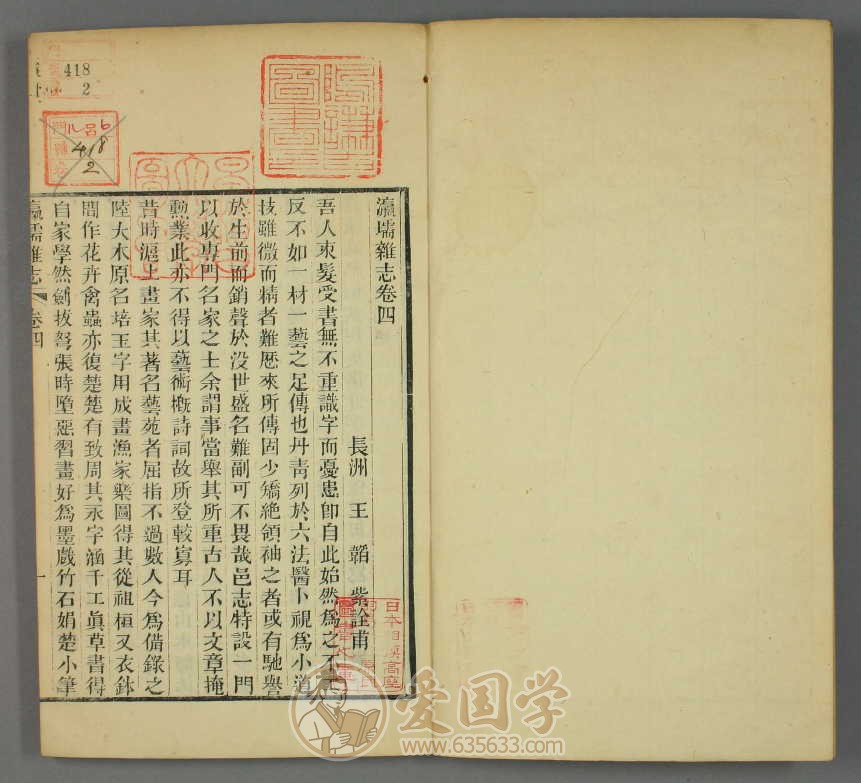 瀛壖雜志卷四
長洲 王韜 紫詮甫
吾人束髮受書無不重識字而憂患卽自此始然爲之不工
反不如一材一藝之足傳也丹靑列於六法醫卜視爲小道
技雖微而精者難歷來所傳固少矯絶領袖之者或有馳譽
於生前而銷聲於没世盛名難副可不畏哉邑志特設一門
以收專門名家之士余謂事當舉其所重古人不以文章掩
勳業此亦不得以藝術槪詩詞故所登較寡耳
昔時滬上畫家其著名藝苑者屈指不過數人今爲備錄之
陸大木原名培玉字用成畫漁家樂圖得其從祖桓又衣鉢
間作花卉禽蟲亦復楚楚有致周其永字涵千工眞草書得
自家學然劍拔弩張時墮惡習畫好爲墨戲竹石娟楚小筆
瀛壖雜志 卷四 一
418
2
418
2
圖書
日本
爱国学
www.635633.com